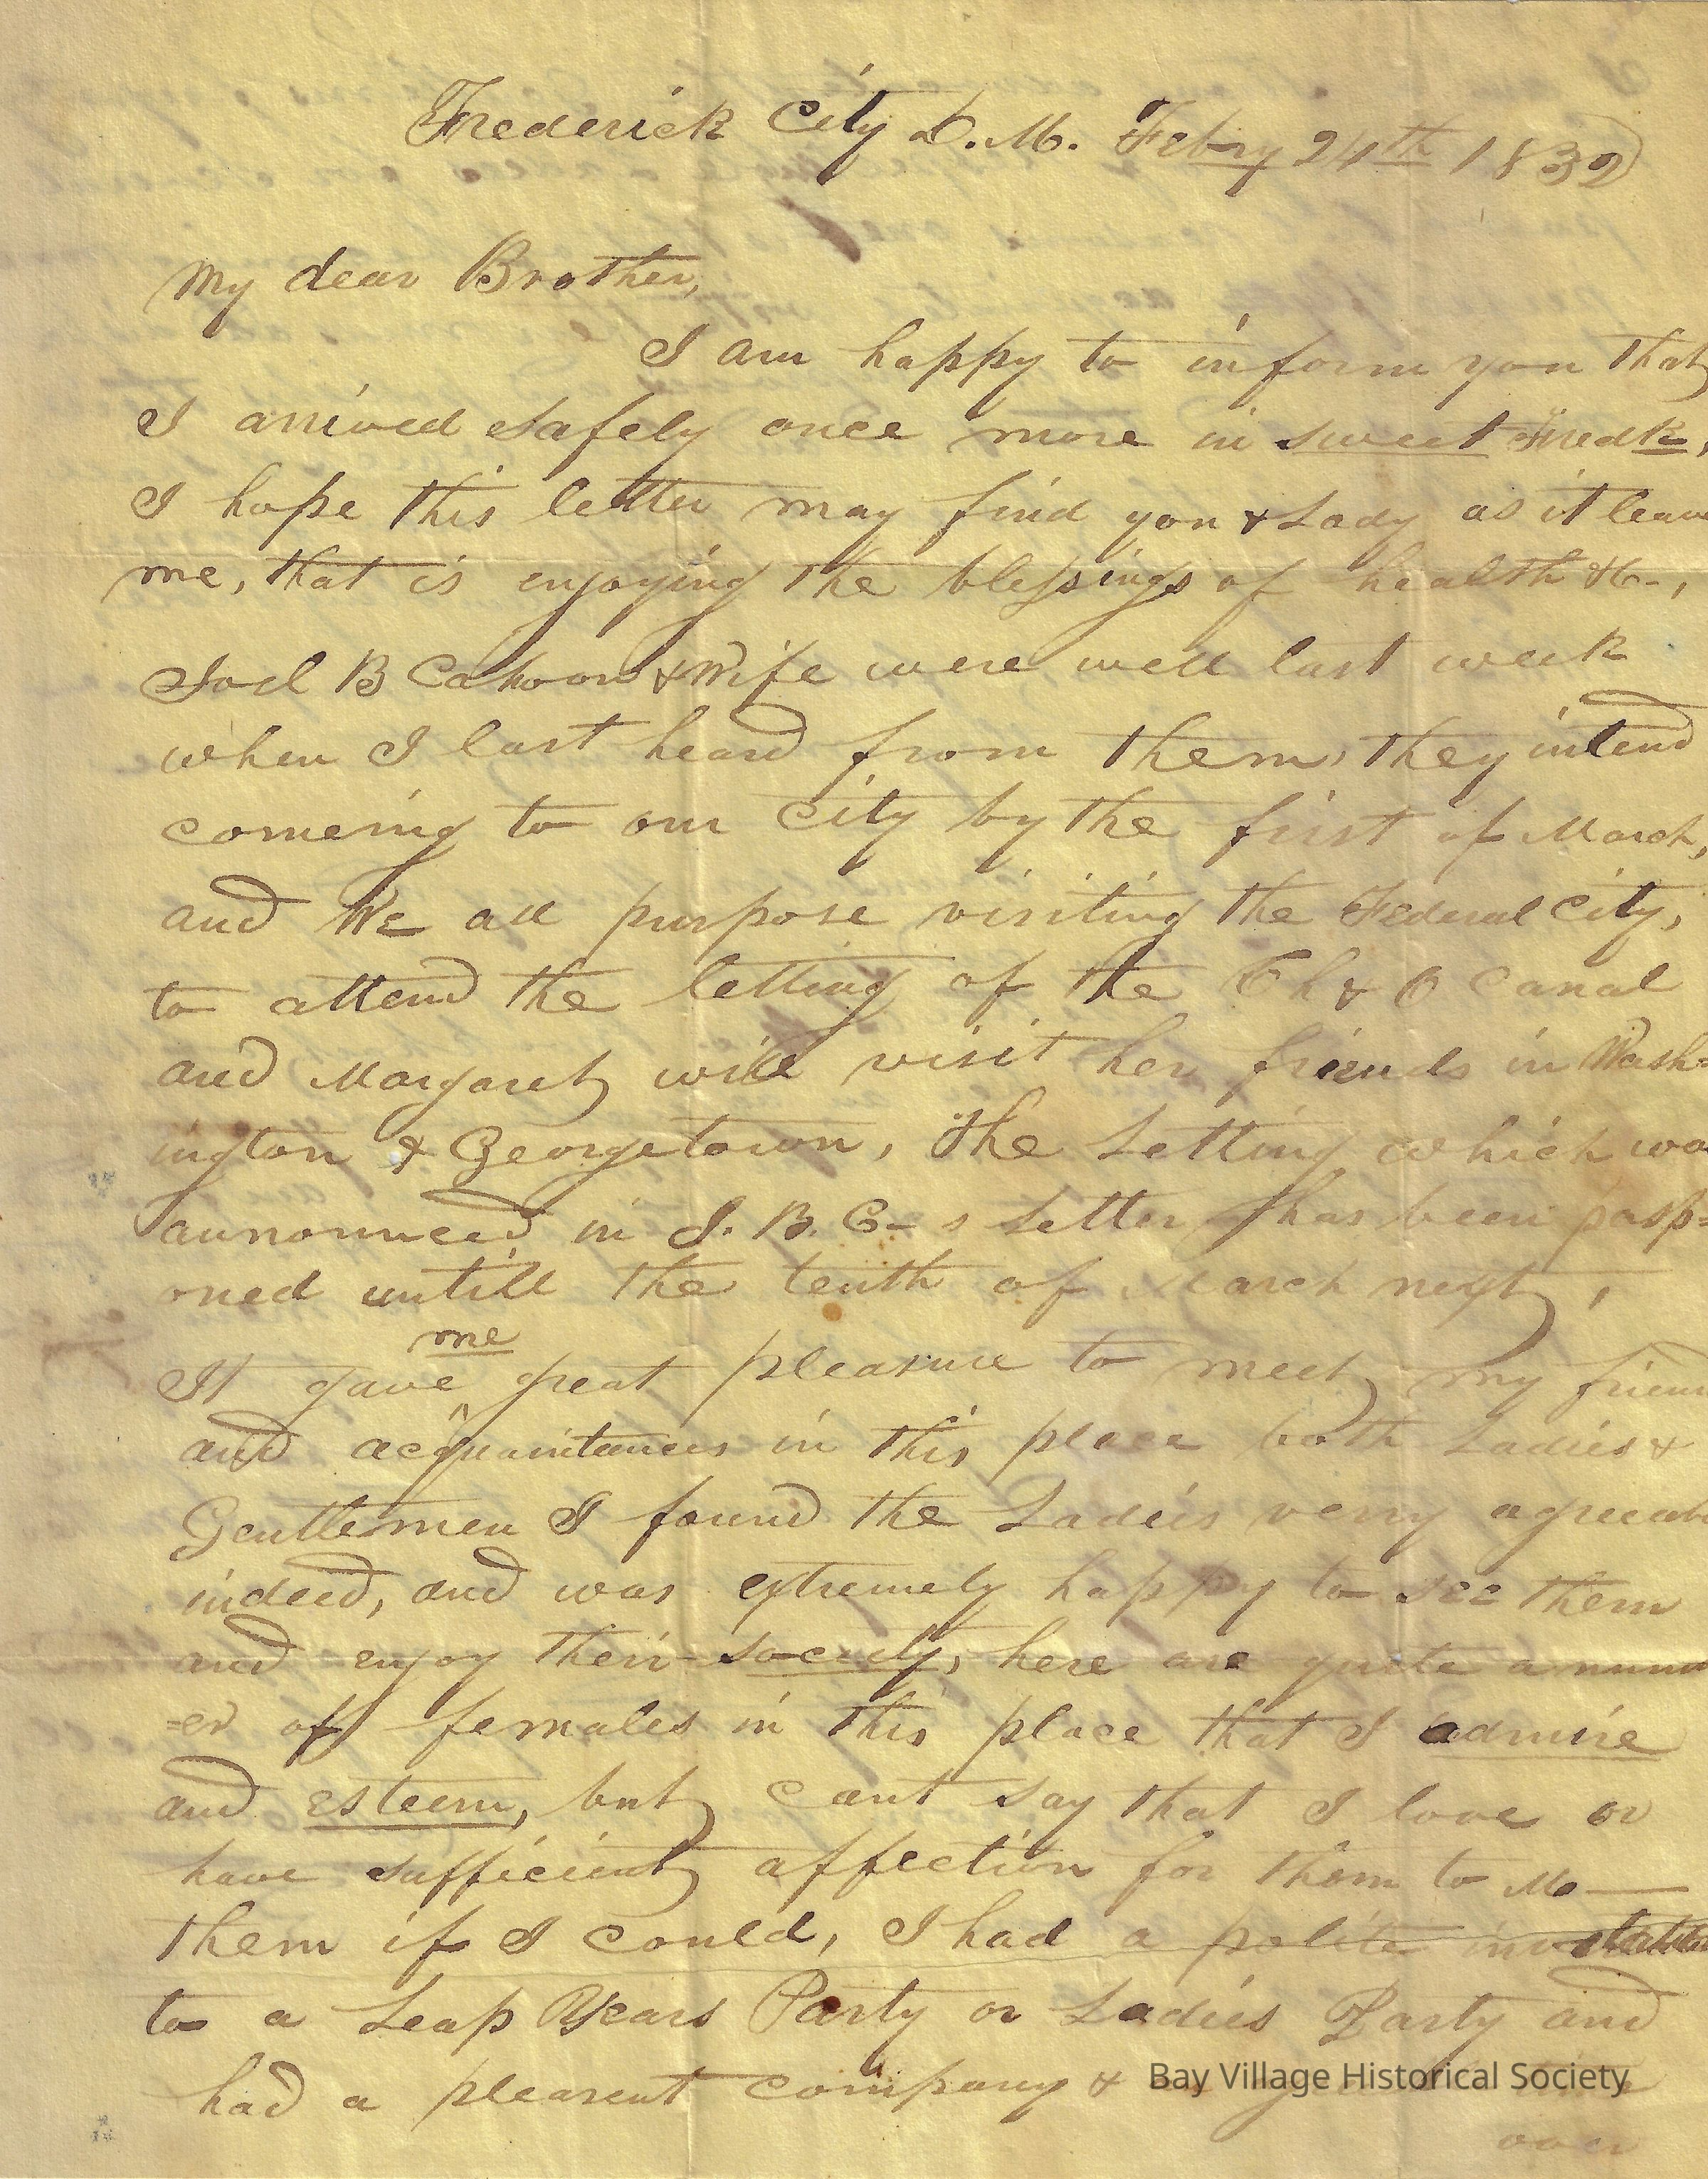 Frederick City D.M. Febry 24th 1832
My dear Brother,
I am happy to inform you that
I arrived safely once more in sweet Fredk,
I hope this letter may find you & Lady as it leav
me, that is enjoying the blessings of health &c-,
Joel B Cahoon & Wife were well last week
when I last heard from them, they intend
comeing to our City by the first of March,
and We all purpose visiting the Federal City,
to attend the letting of the Ch & O Canal
and Margaret will visit her friends in Wash=
ington & Georgetown, The Letting which wa
announced in J. B. C-s Letter has been posp=
oned untill the tenth of March next,
me
It gave great pleasure to meet my friend
and acquaintances in this place both Ladies &
Gentlemen I found the Ladies very agreeab
indeed, and was extremely happy to see them
and enjoy their society, here are quite a num
=er off females in this place that I admire
and esteem, but cant say that I love or
have sufficient affection for them to Ma——
them if I could, I had a polite
to a Leap Years Party or Ladies Party and
had a pleasent company &
Bay Village Historical Society
over